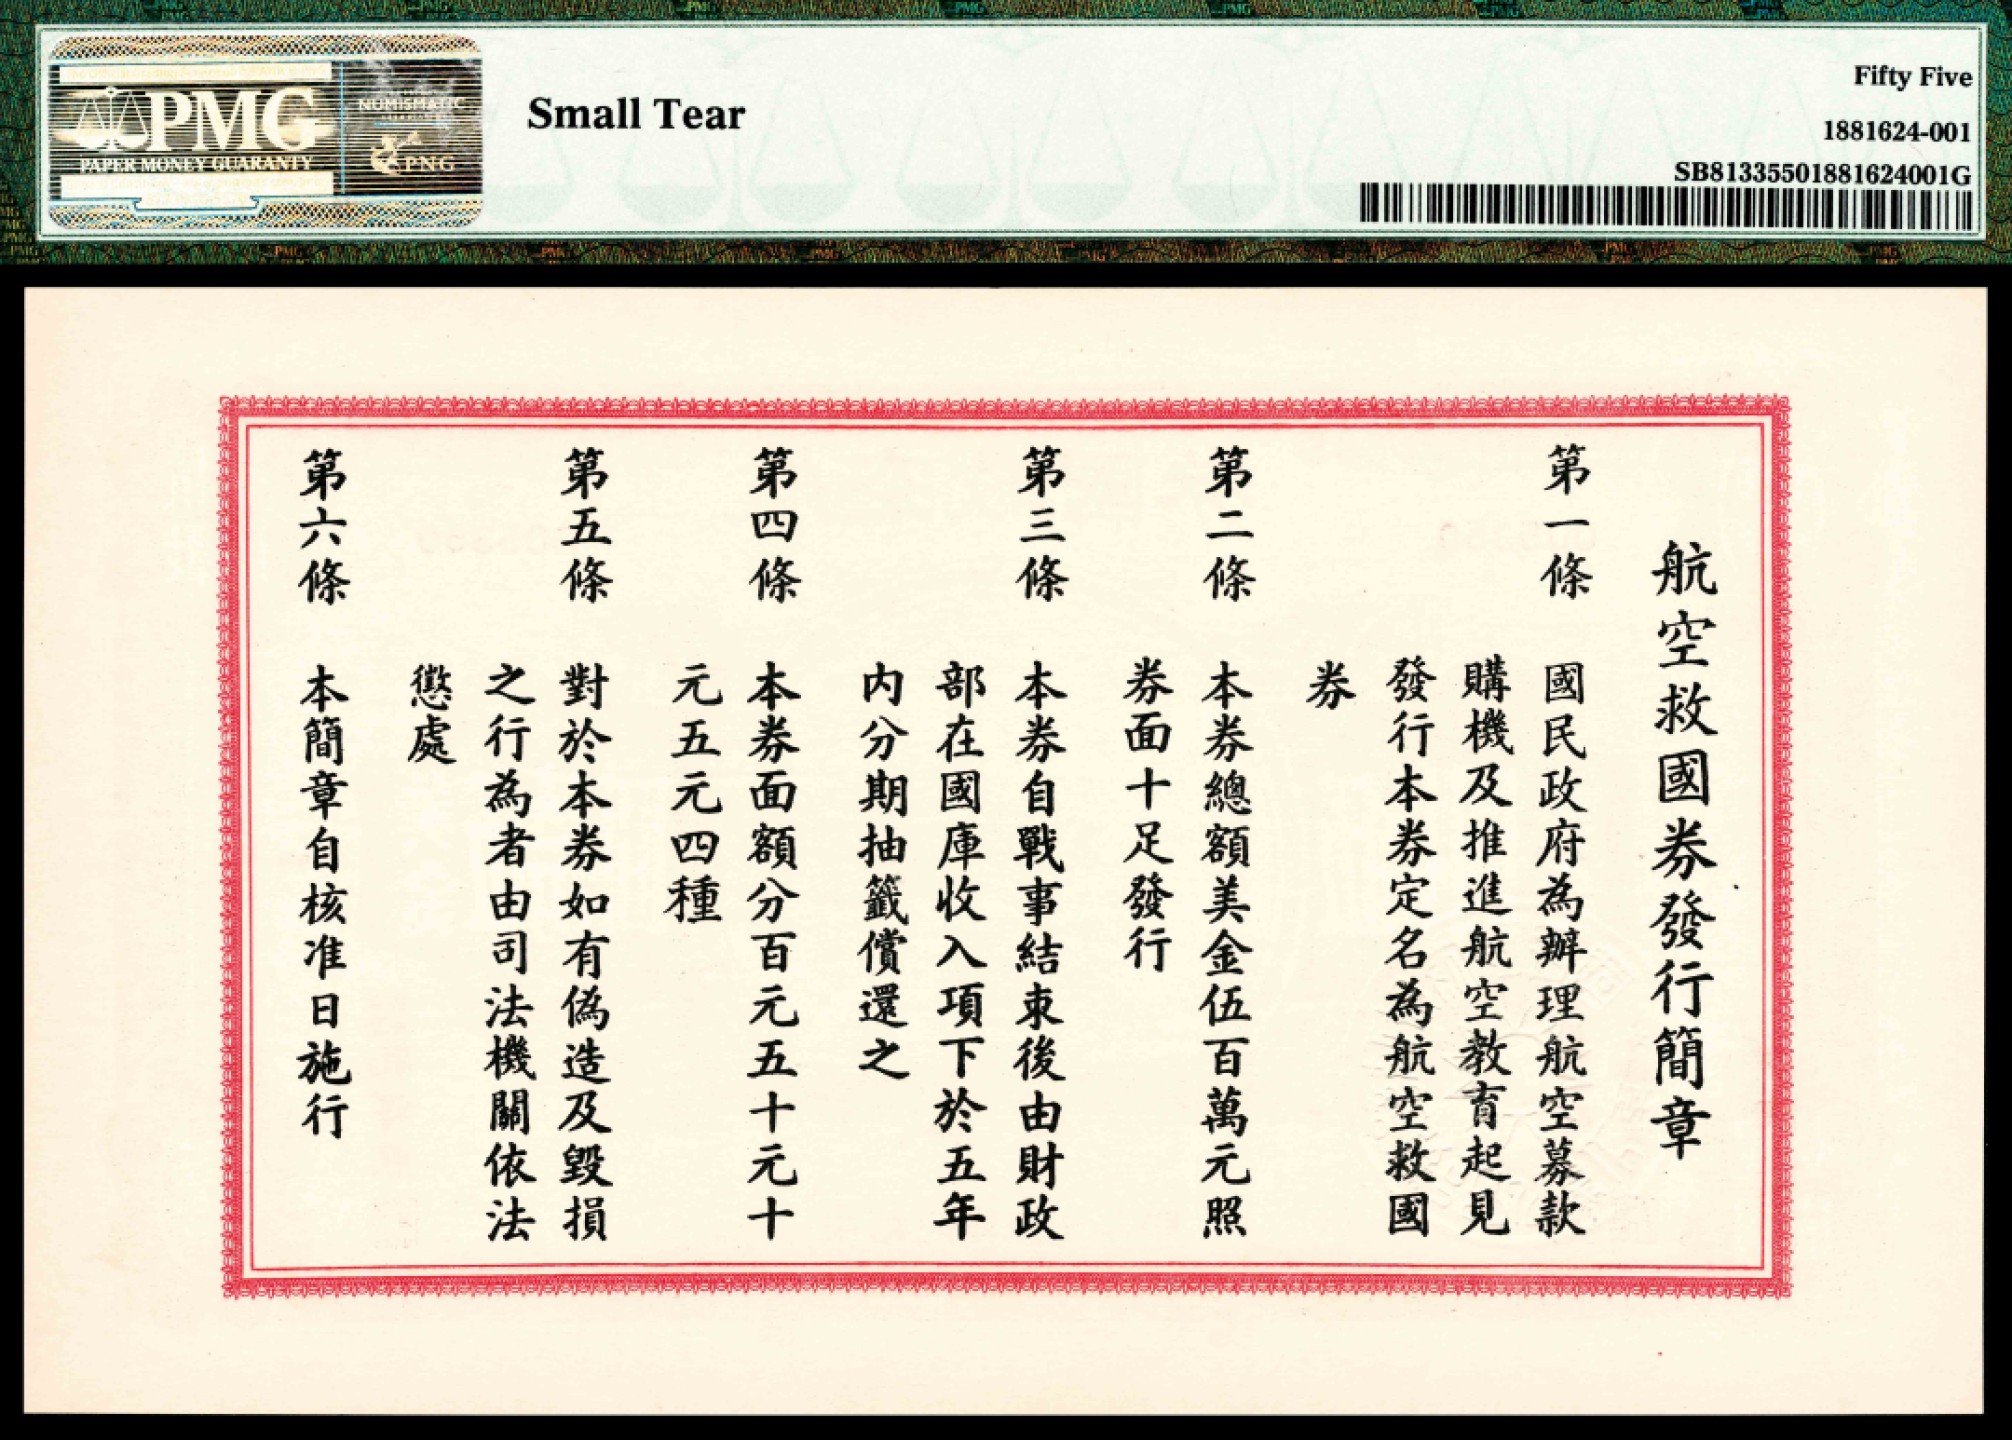 PMG
PAPER MONEY GUARANTY
NUMISMATIC
PNG
Small Tear
Fifty Five
1881624-001
SB81335501881624001G
航空救國券發行簡章
第一條 國民政府為辦理航空募款
購機及推進航空教育起見
發行本券定名為航空救國
券
第二條 本券總額美金伍百萬元照
券面十足發行
第三條 本券自戰事結束後由財政
部在國庫收入項下於五年
内分期抽籤償還之
第四條 本券面額分百元五十元十
元五元四種
第五條 對於本券如有偽造及毀損
之行為者由司法機關依法
懲處
第六條 本簡章自核准日施行